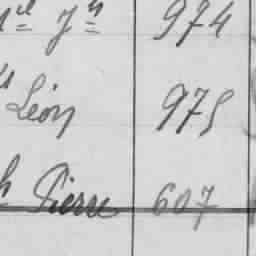 Jh 974
Léon 975
Pierre 607